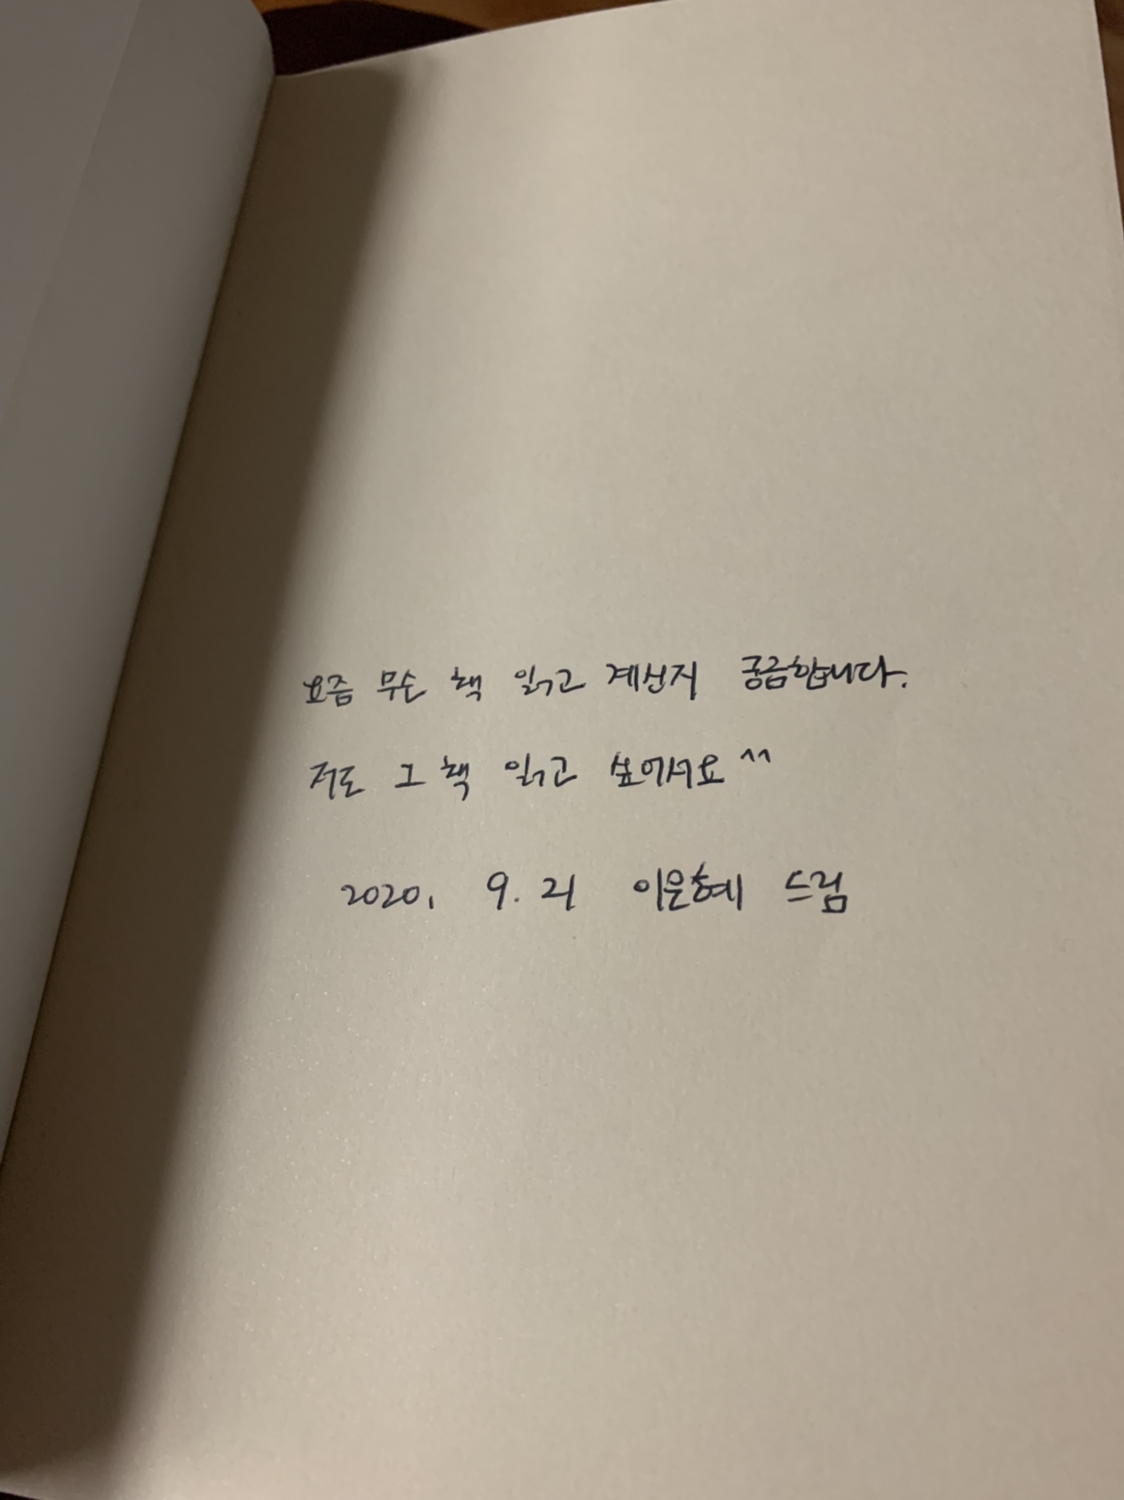 요즘 무슨 책 읽고 계신지 궁금합니다.
저도 그 책 읽고 싶어서요 ^^
2020. 9. 21 이은혜 드림